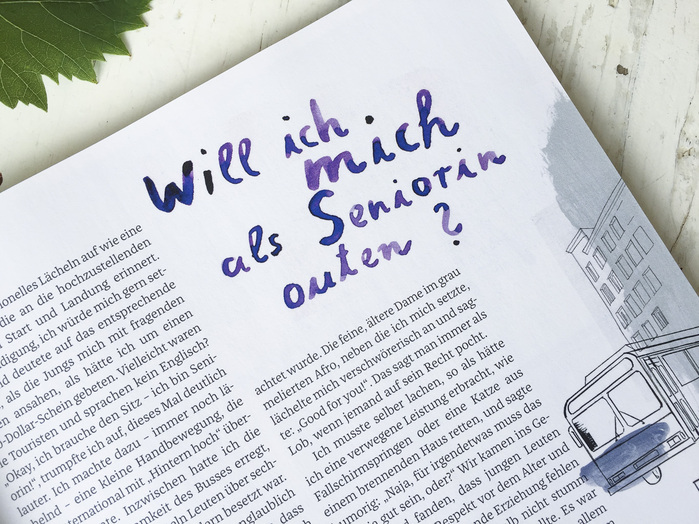 Will ich
mich
als Seniorin
outen?
Lächeln auf wie eine
die an die hochzustellenden
Start und Landung erinnert.
ich würde mich gern set-
deutete auf das entsprechende
als die Jungs mich mit fragenden
ansahen, als hätte ich um einen
Dollar-Schein gebeten. Vielleicht waren
Touristen und sprachen kein Englisch?
„Okay, ich brauche den Sitz – ich bin Seni-
orin!“, trumpfte ich auf, dieses Mal deutlich
lauter. Ich machte dazu – immer noch lä-
chelnd – eine kleine Handbewegung, die
mit „Hintern hoch“ über-
Inzwischen hatte ich die
des Busses erregt,
Leuten über sech-
besetzt war.
dass
achtet wurde. Die feine, ältere Dame im grau
melierten Afro, neben die ich mich setzte,
lächelte mich verschwörerisch an und sag-
te: „Good for you!“. Das sagt man immer als
Lob, wenn jemand auf sein Recht pocht.
Ich musste selber lachen, so als hätte
ich eine verwegene Leistung erbracht, wie
Fallschirmspringen oder eine Katze aus
einem brennenden Haus retten, und sagte
humorig: „Naja, für irgendetwas muss das
gut sein, oder?“ Wir kamen ins Ge-
und fanden, dass jungen Leuten
vor dem Alter und
Erziehung fehlen
nicht stumm
Es war
allem